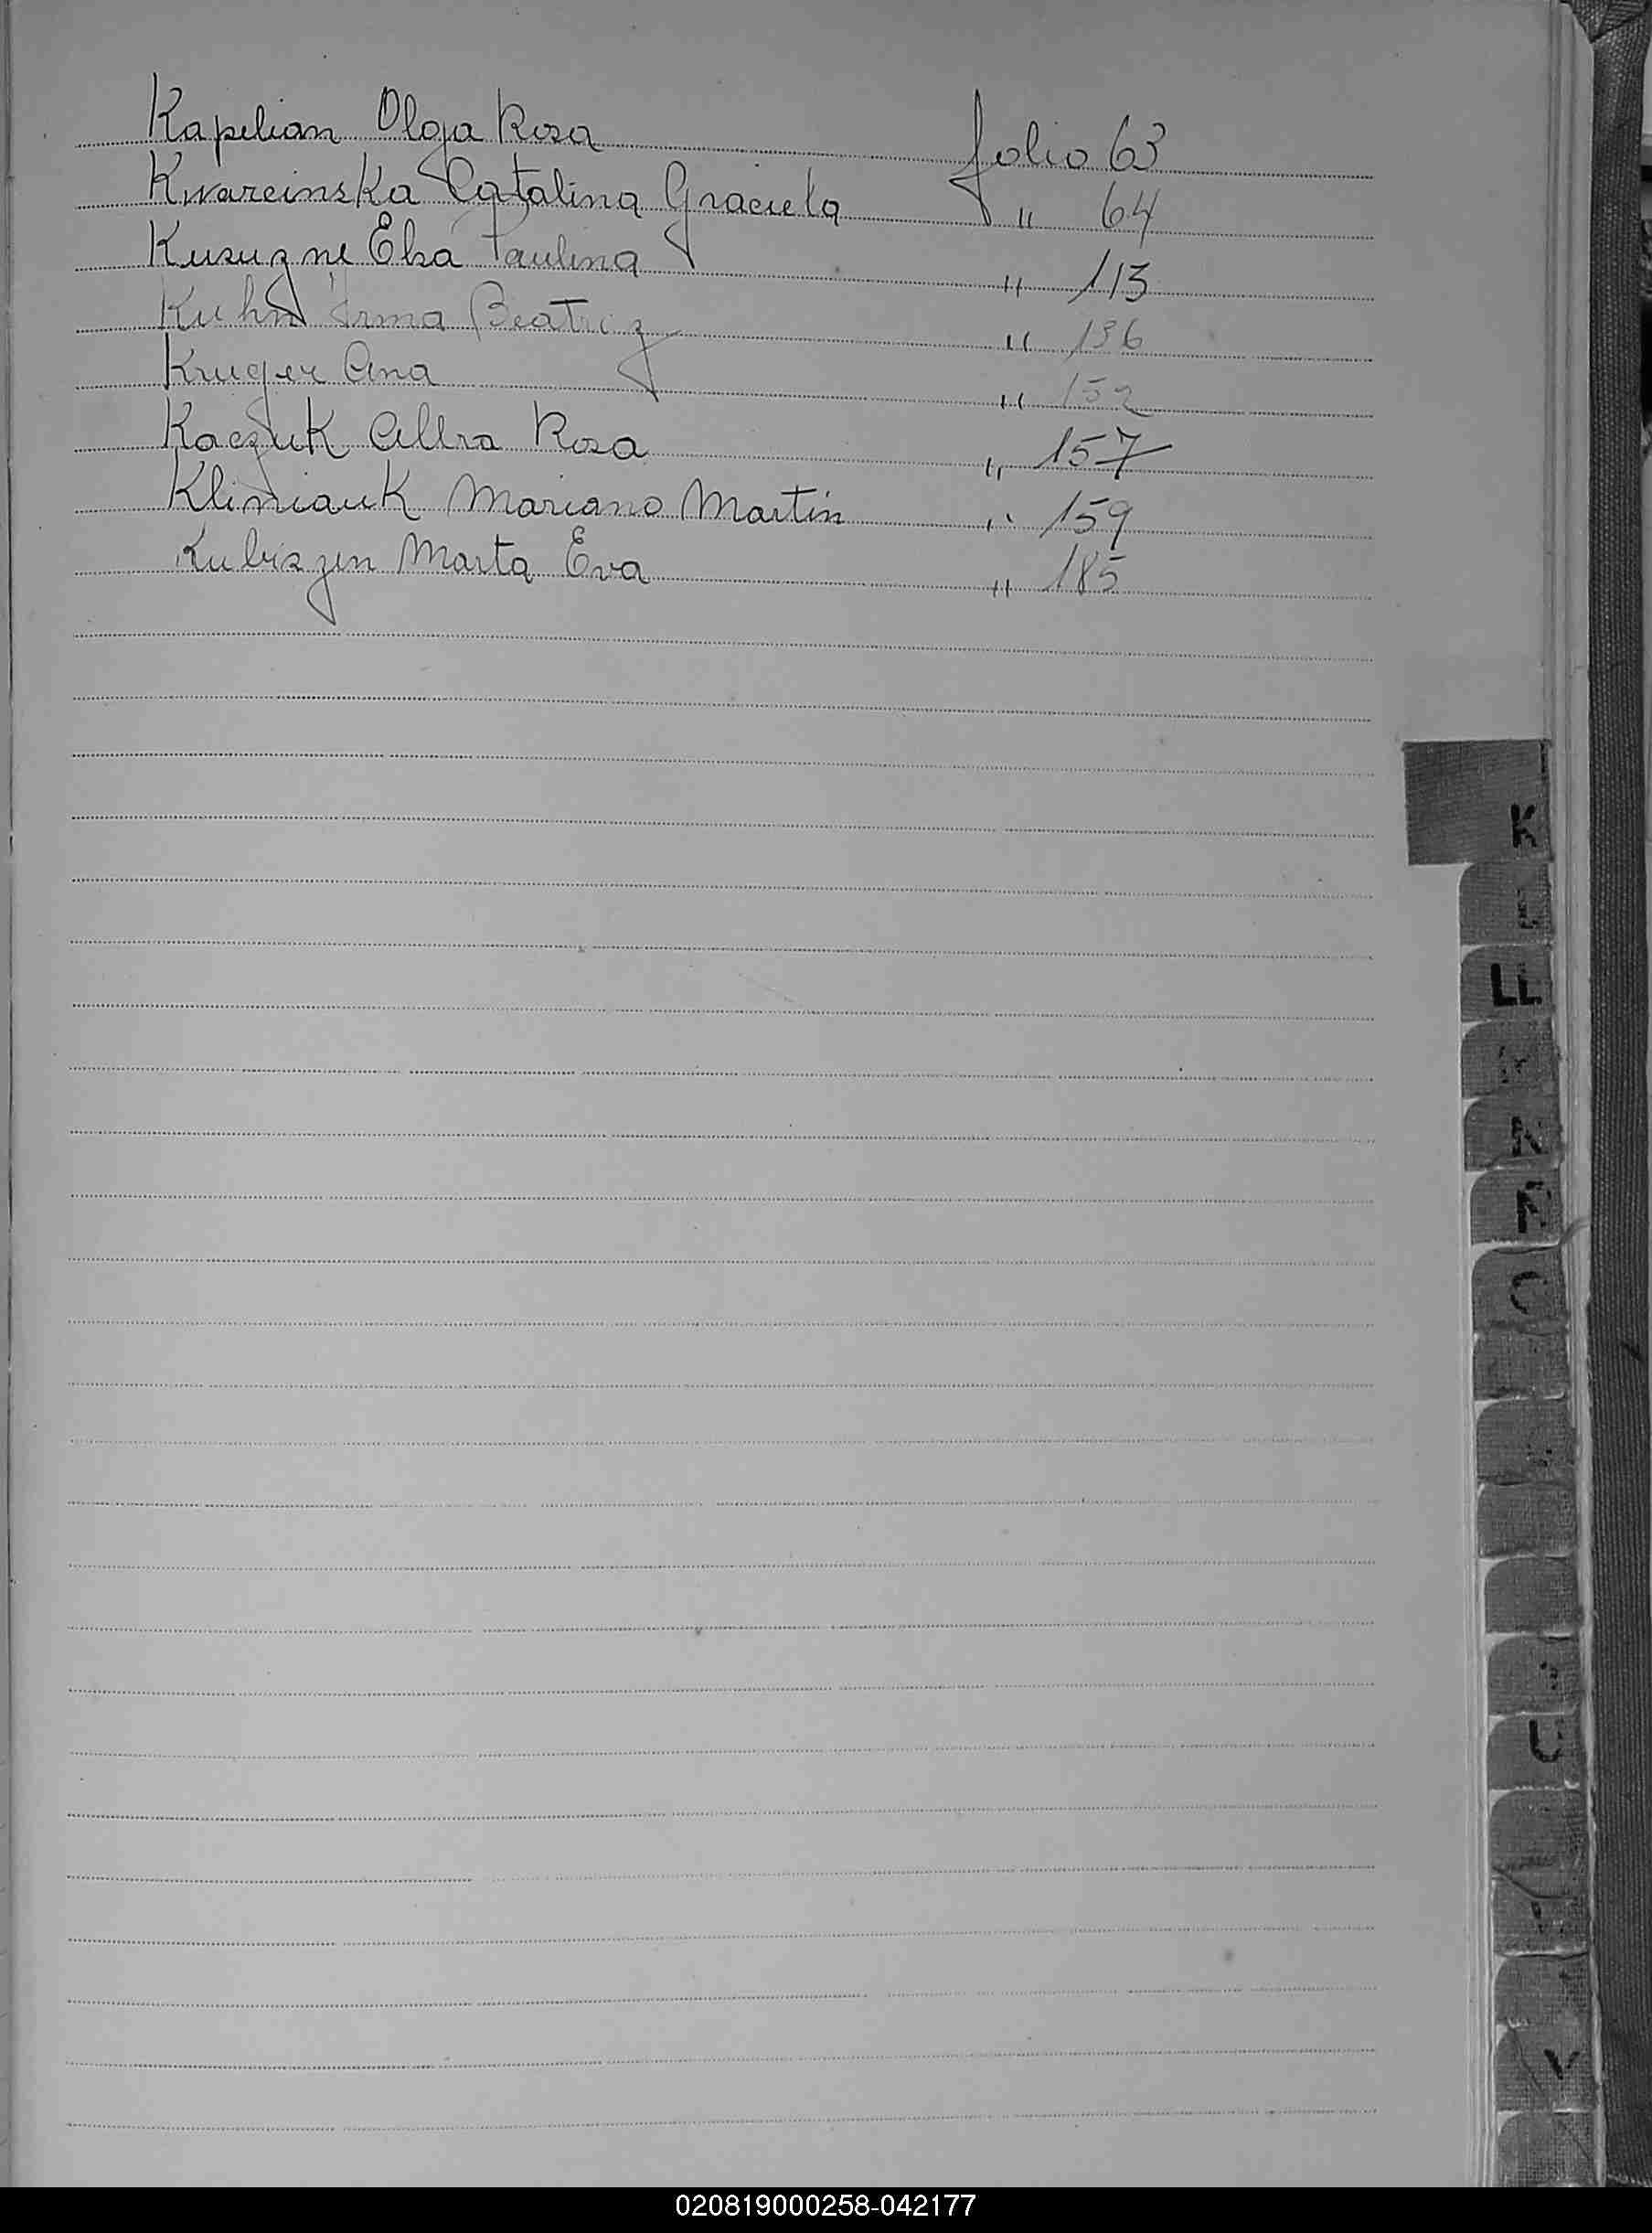 Kapelian Olga Rosa folio 63
Kwarcinska Catalina Graciela " 64
Elsa Paulina " 113
Kuhn Irma Beatriz " 136
Kruger Ana " 152
Kaczuk Rosa " 157
Klimiauk Mariano Martín " 159
Kubiszen Marta Eva " 185
K
LL
N
Ñ
O
U
V
020819000258-042177